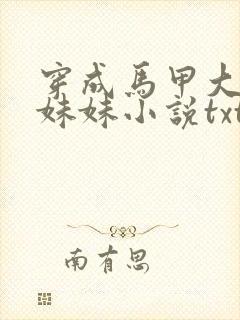 穿成馬甲大
妹妹小說txt
南有思